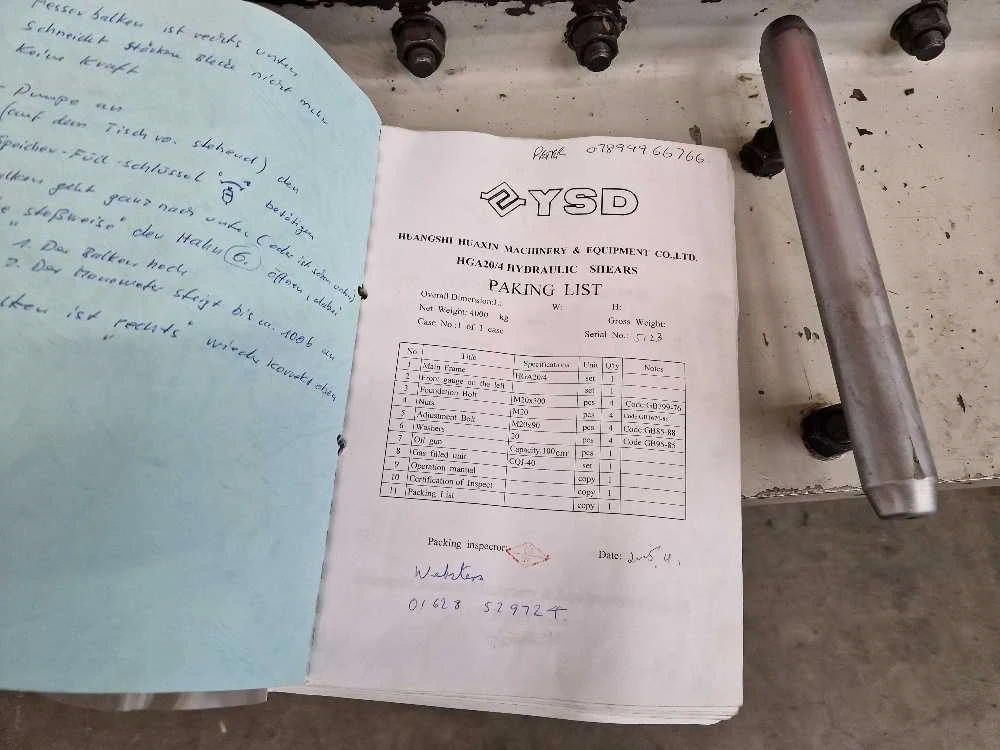 Messerbalken ist rechts unten
schneidet stärkere Bleche nicht mehr
Keine Kraft
- Pumpe an
(auf dem Tisch vo. stehend) den
Speicher-Füll-schlüssel betätigen
Balken geht ganz nach unten (oder ist schon unten)
"stoßweise" den Hahn 6. öffnen, dabei
1. Den Balken hoch
2. Der Manometer steigt bis ca. 100b an
Balken ist "rechts" wieder korrekt oben
PETER 07899966766.
YSD
HUANGSHI HUAXIN MACHINERY & EQUIPMENT CO.,LTD.
HGA20/4 HYDRAULIC SHEARS
PAKING LIST
Overall Dimension:L: W: H:
Net Weight: 4000 kg Gross Weight:
Case No.:1 of 1 case Serial No.: 5123
No. Title Specifications Unit Q'ty Notes
1 Main Frame HGA20/4 set 1
2 Front gauge on the left set 1
3 Foundation Bolt M20x300 pcs 4 Code:GB799-76
4 Nuts M20 pcs 4
5 Adjustment Bolt M20x90 pcs 4 Code GB85-88
6 Washers 20 pcs 4 Code GB95-85
7 Oil gun Capacity 100cm³ pcs 1
8 Gas filled unit CQJ-40 set 1
9 Operation manual copy 1
10 Certification of Inspect copy 1
11 Packing List copy 1
Packing inspecror: Date: 2005.4.
Websters
01628 529724